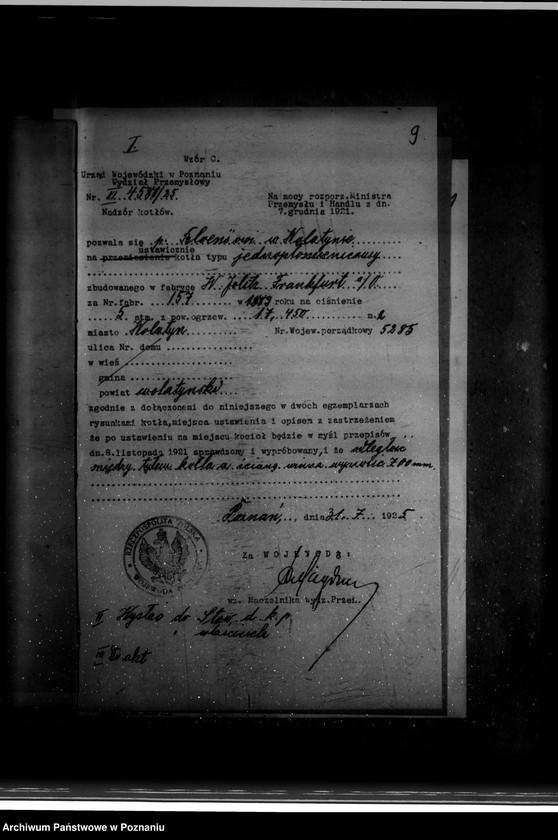 I
9
Wzór C.
Urząd Wojewódzki w Poznaniu
Wydział Przemysłowy
Nr. VI 4581/25.
Nadzór kotłów.
Na mocy rozporz.Ministra
Przemysłu i Handlu z dn.
7.grudnia 1921.
pozwala się p. w
ustawienie
na przeniesienie kotła typu jednopłomienicowy
zbudowanego w fabryce W. Frankfurt a/O.
za Nr.fabr. 157 w 1889 roku na ciśnienie
5 atm. z pow.ogrzew. 17,450 m2
miasto Nr.Wojew.porządkowy 5285
ulica Nr. domu
w wieś
gmina
powiat
zgodnie z dołączonemi do niniejszego w dwóch egzemplarzach
rysunkami kotła,miejsca ustawienia i opisem z zastrzeżeniem
że po ustawieniu na miejscu kocioł będzie w myśl przepisów
dn.8.listopada 1921 sprawdzony i wypróbowany,i że odległość
między tyłem kotła a ścianą winna wynosić 700 mm.
Poznań, dnia 31. 7. 1925
Za WOJEWODĘ:
wz. Naczelnika Wydz.Przem.
RZECZPOSPOLITA POLSKA
WOJEWODA
II Wysłać do Stow. d. k. p.
" właściciela
III Do akt
Archiwum Państwowe w Poznaniu